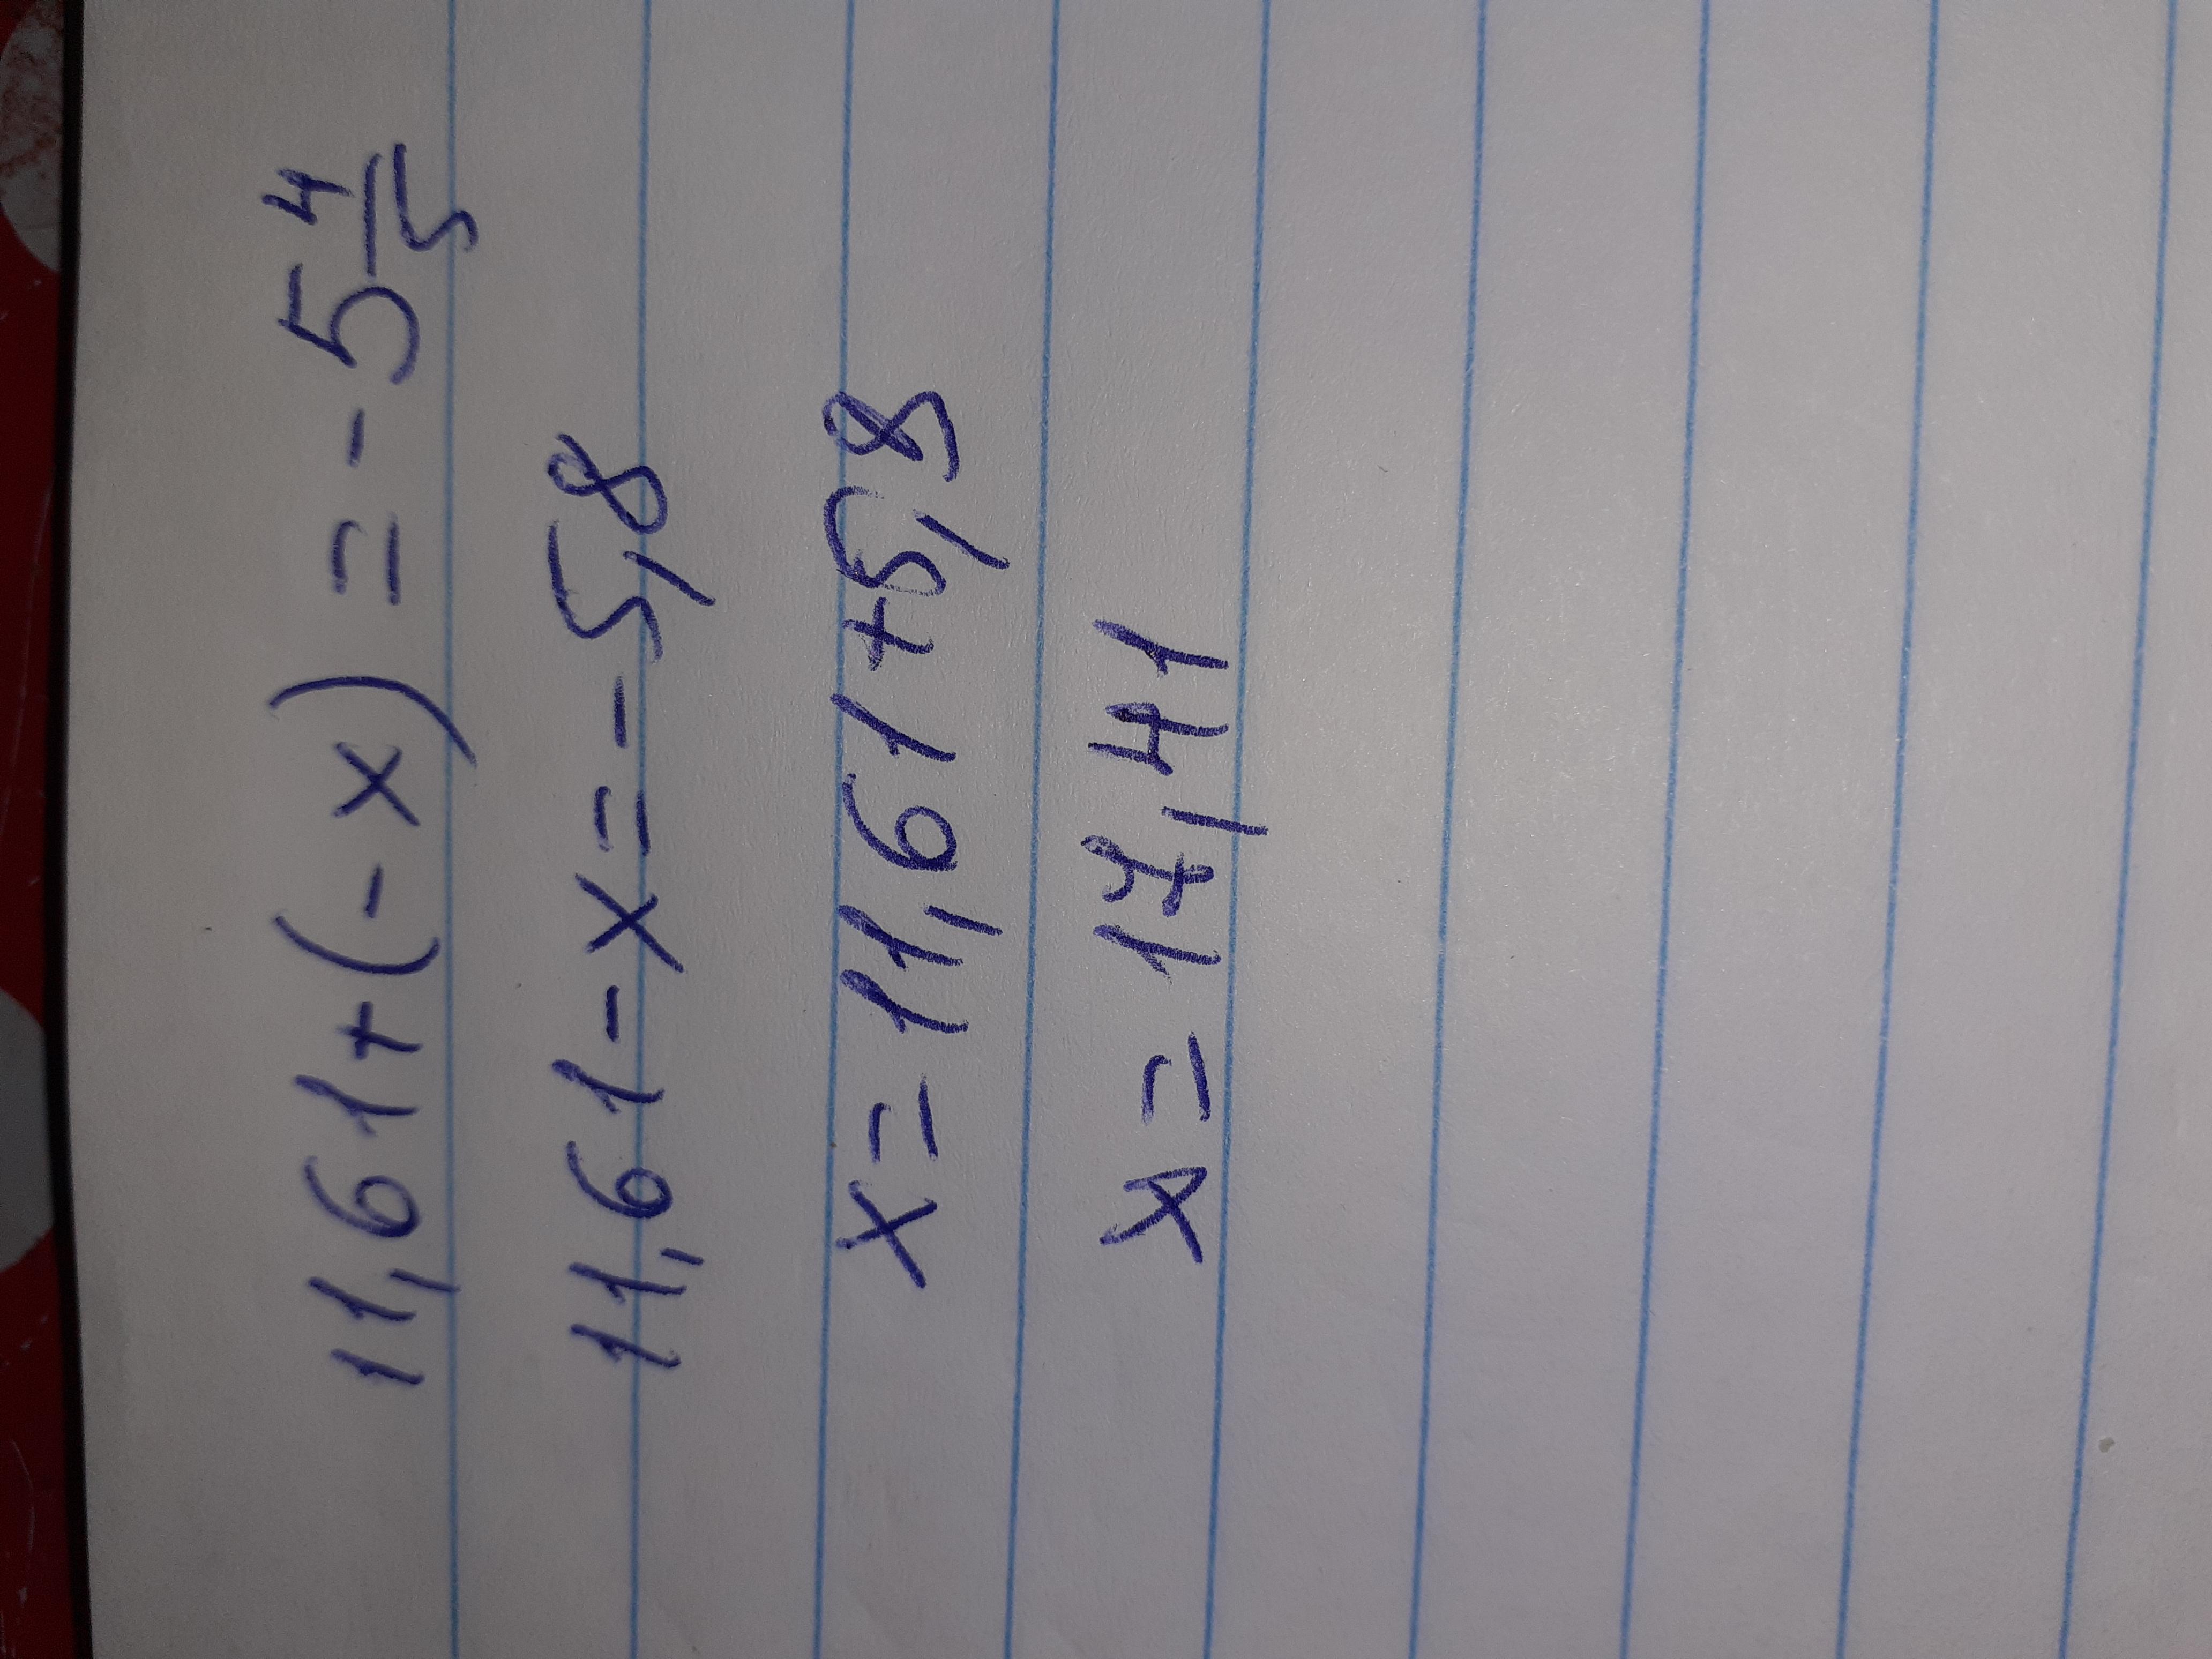 11,61+(-x) = -5 4/5
11,61-x=-5,8
x=11,61+5,8
x=17,41